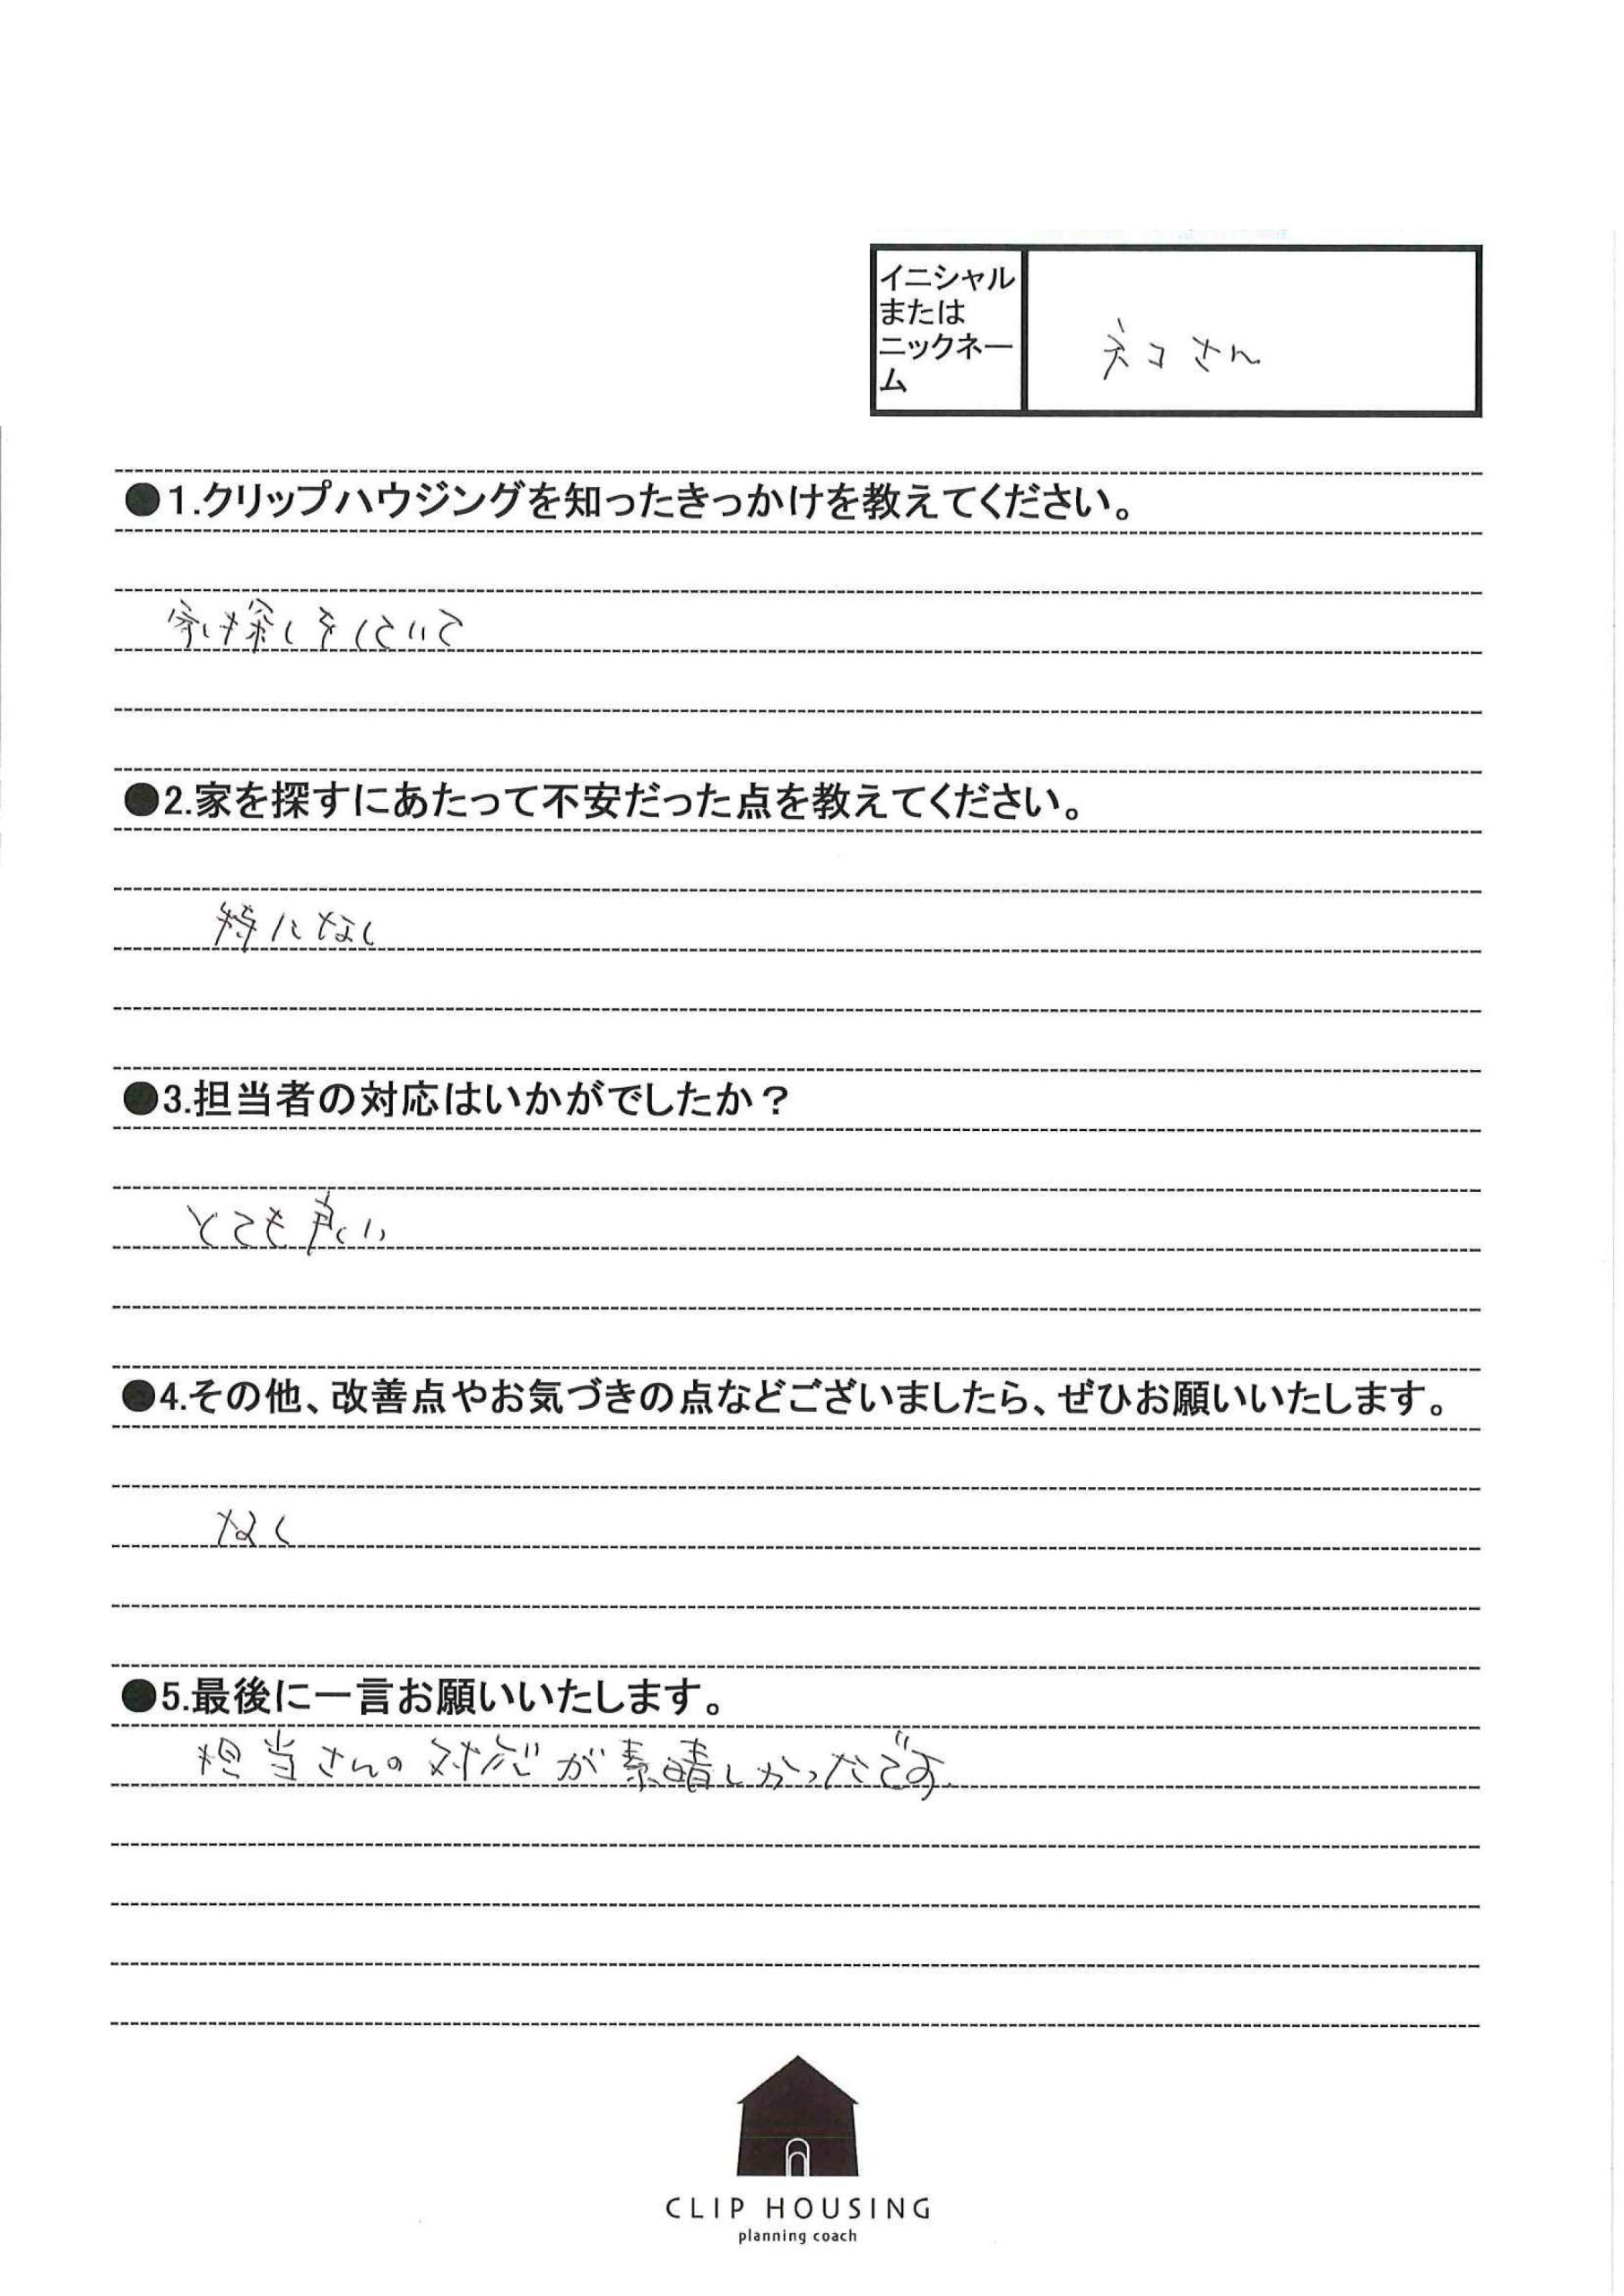 イニシャル
または
ニックネー
ム
ネコさん
●1.クリップハウジングを知ったきっかけを教えてください。
探しをしていて
●2.家を探すにあたって不安だった点を教えてください。
特になし
●3.担当者の対応はいかがでしたか？
とても良い
●4.その他、改善点やお気づきの点などございましたら、ぜひお願いいたします。
なし
●5.最後に一言お願いいたします。
担当さんの対応が素晴しかったです
CLIP HOUSING
planning coach